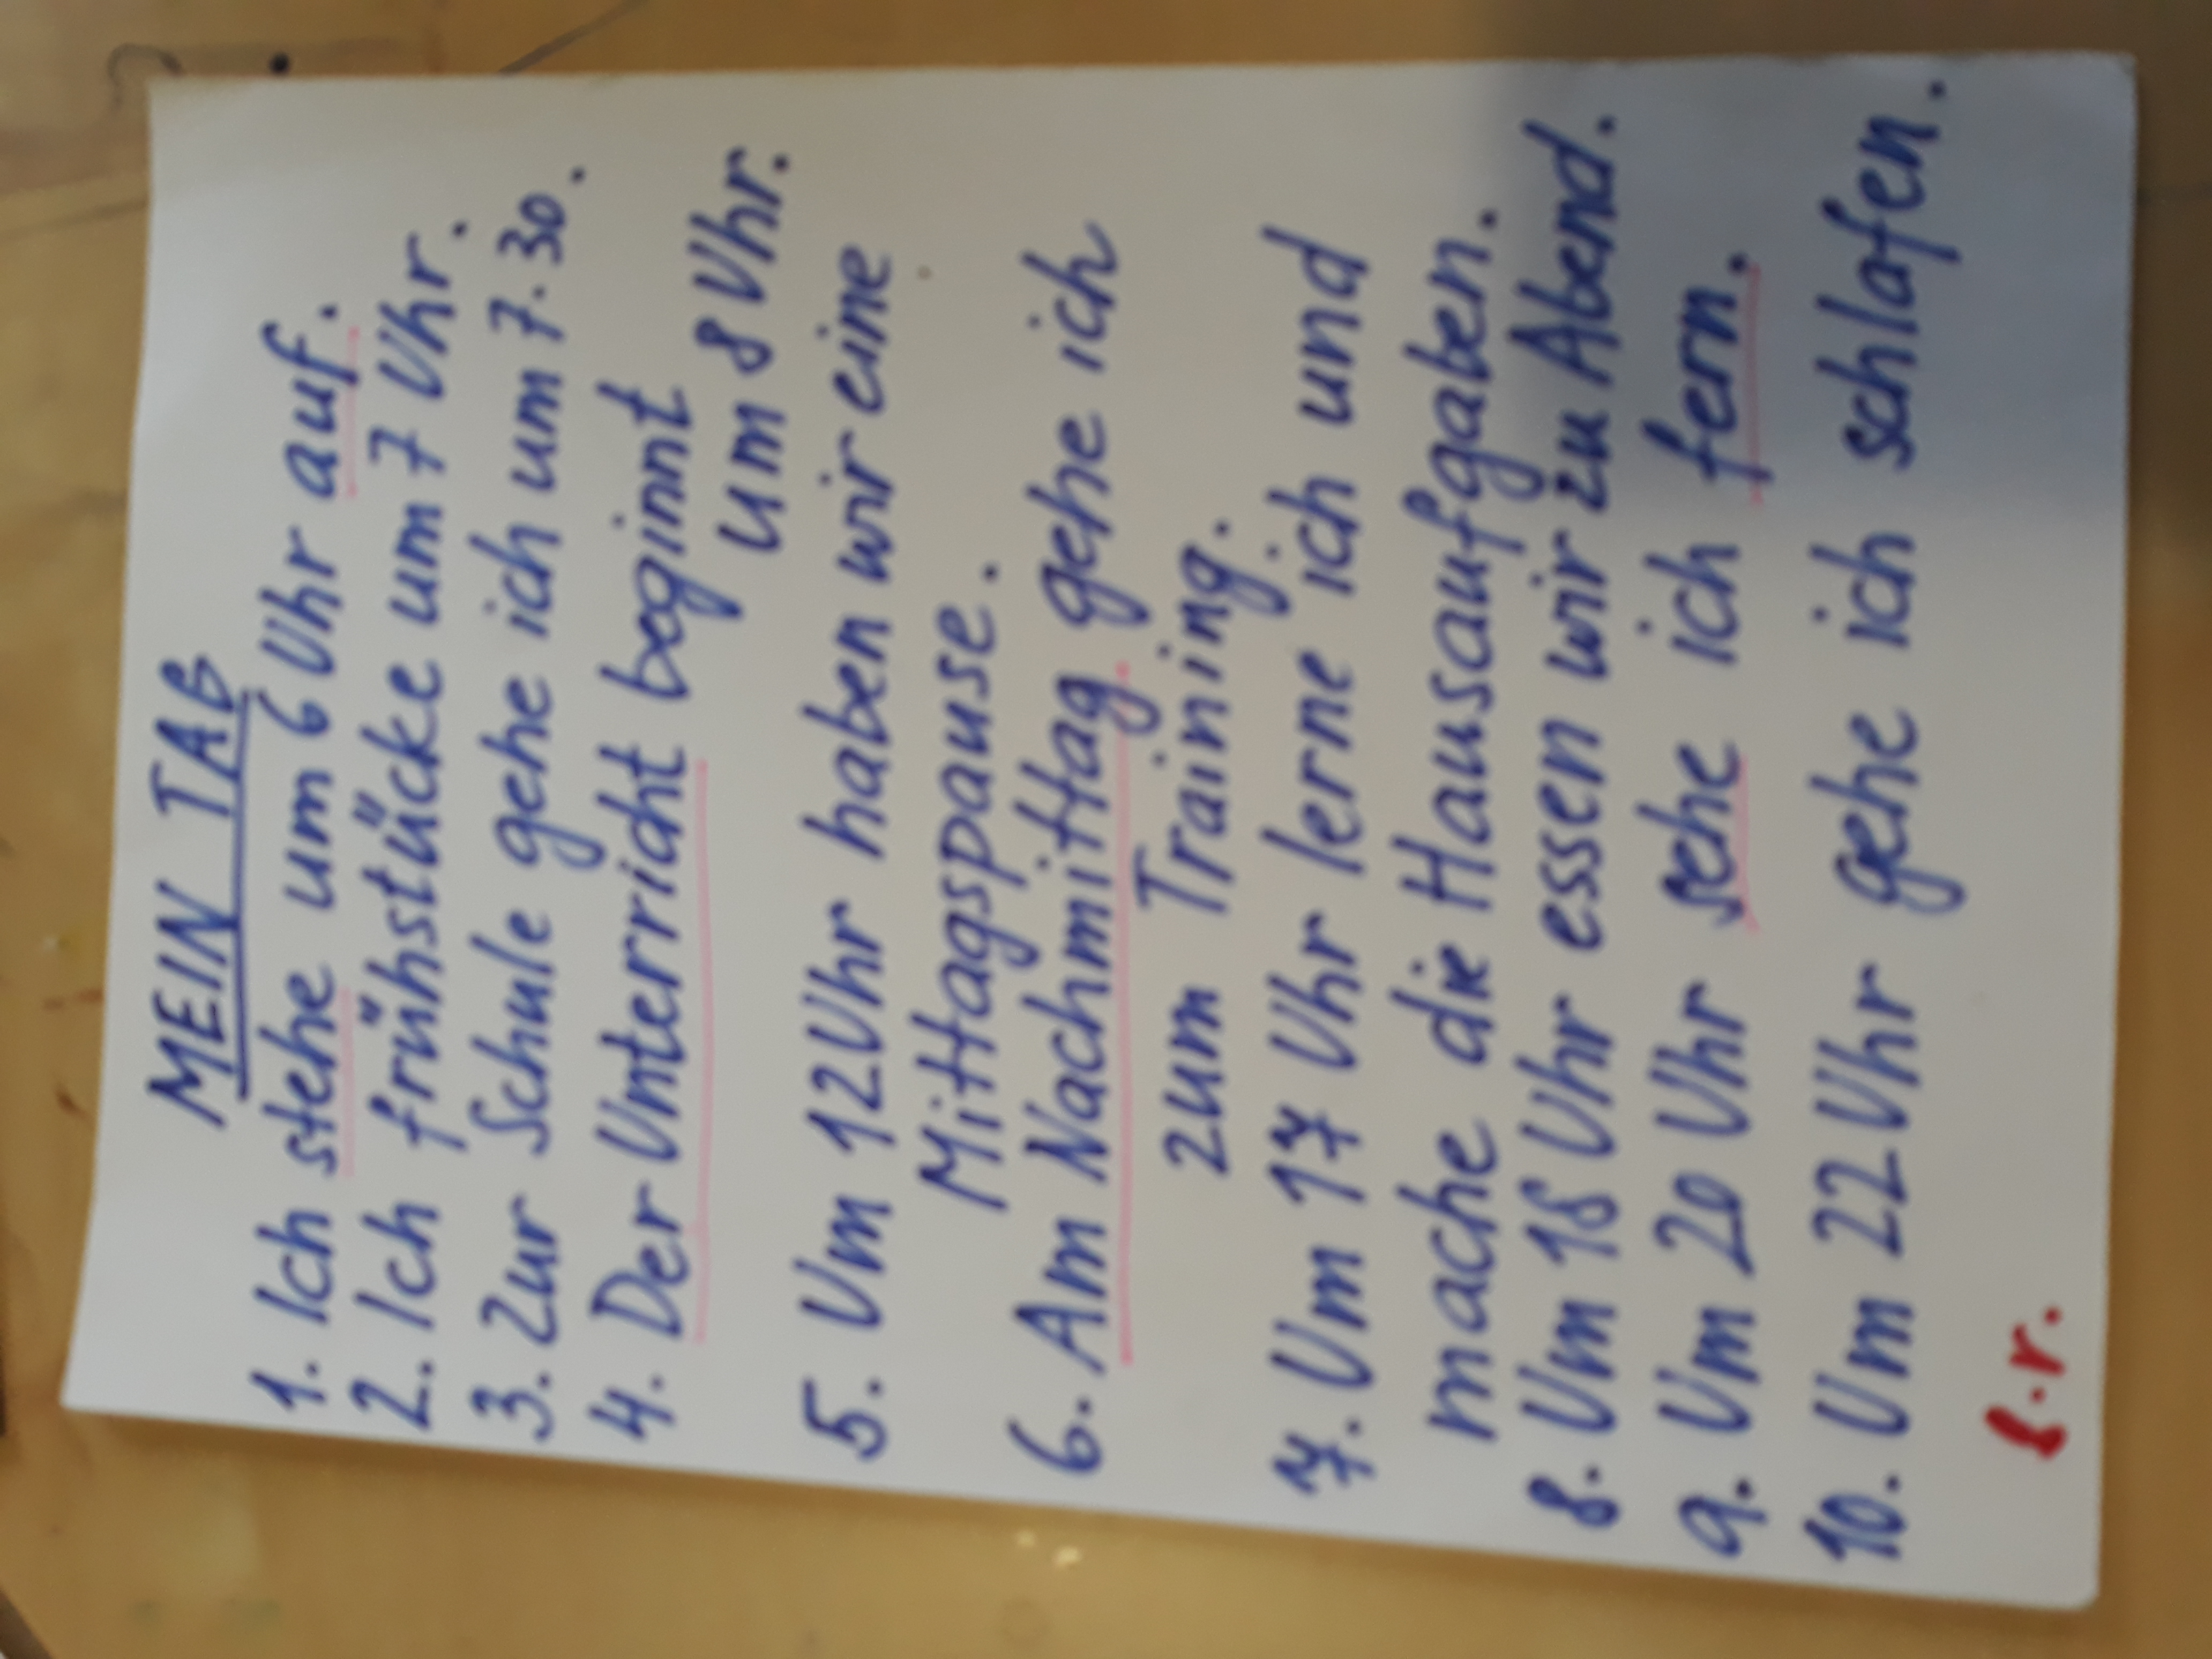 MEIN TAG
1. Ich stehe um 6 Uhr auf.
2. Ich frühstücke um 7 Uhr.
3. Zur Schule gehe ich um 7.30.
4. Der Unterricht beginnt
um 8 Uhr.
5. Um 12 Uhr haben wir eine
Mittagspause.
6. Am Nachmittag gehe ich
zum Training.
7. Um 17 Uhr lerne ich und
mache die Hausaufgaben.
8. Um 18 Uhr essen wir zu Abend.
9. Um 20 Uhr sehe ich fern.
10. Um 22 Uhr gehe ich schlafen.
8.r.